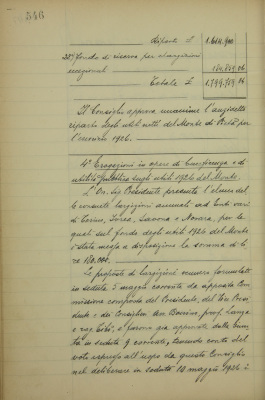 546
riporto £
25) fondo di riserva per elargizioni
eccezionali 184.859.06
Totale £ 1.799.759.06
Il Consiglio approva unanime l'anzidetto
riparto degli utili netti del Monte di Pietà per
l'esercizio 1926.
4° Erogazioni in opere di beneficenza e di
utilità pubblica sugli utili 1926 del Monte.
L'On. Sig. Presidente presenta l'elenco del
le consuete largizioni annuali ad Enti vari
di Torino, Ivrea, Savona e Novara, per le
quali sul fondo degli utili 1926 del Monte
è stata messa a disposizione la somma di li
re 180.000.
Le proposte di largizioni vennero formulate
in seduta 5 maggio corrente da apposita Com
missione composta del Presidente, del Vice Presi
dente e dei Consiglieri
e rag. e furono già approvate dalla Giun
ta in seduta 9 corrente, tenendo conto del
voto espresso all'uopo da questo Consiglio
nel deliberare in seduta 18 maggio 1926 il